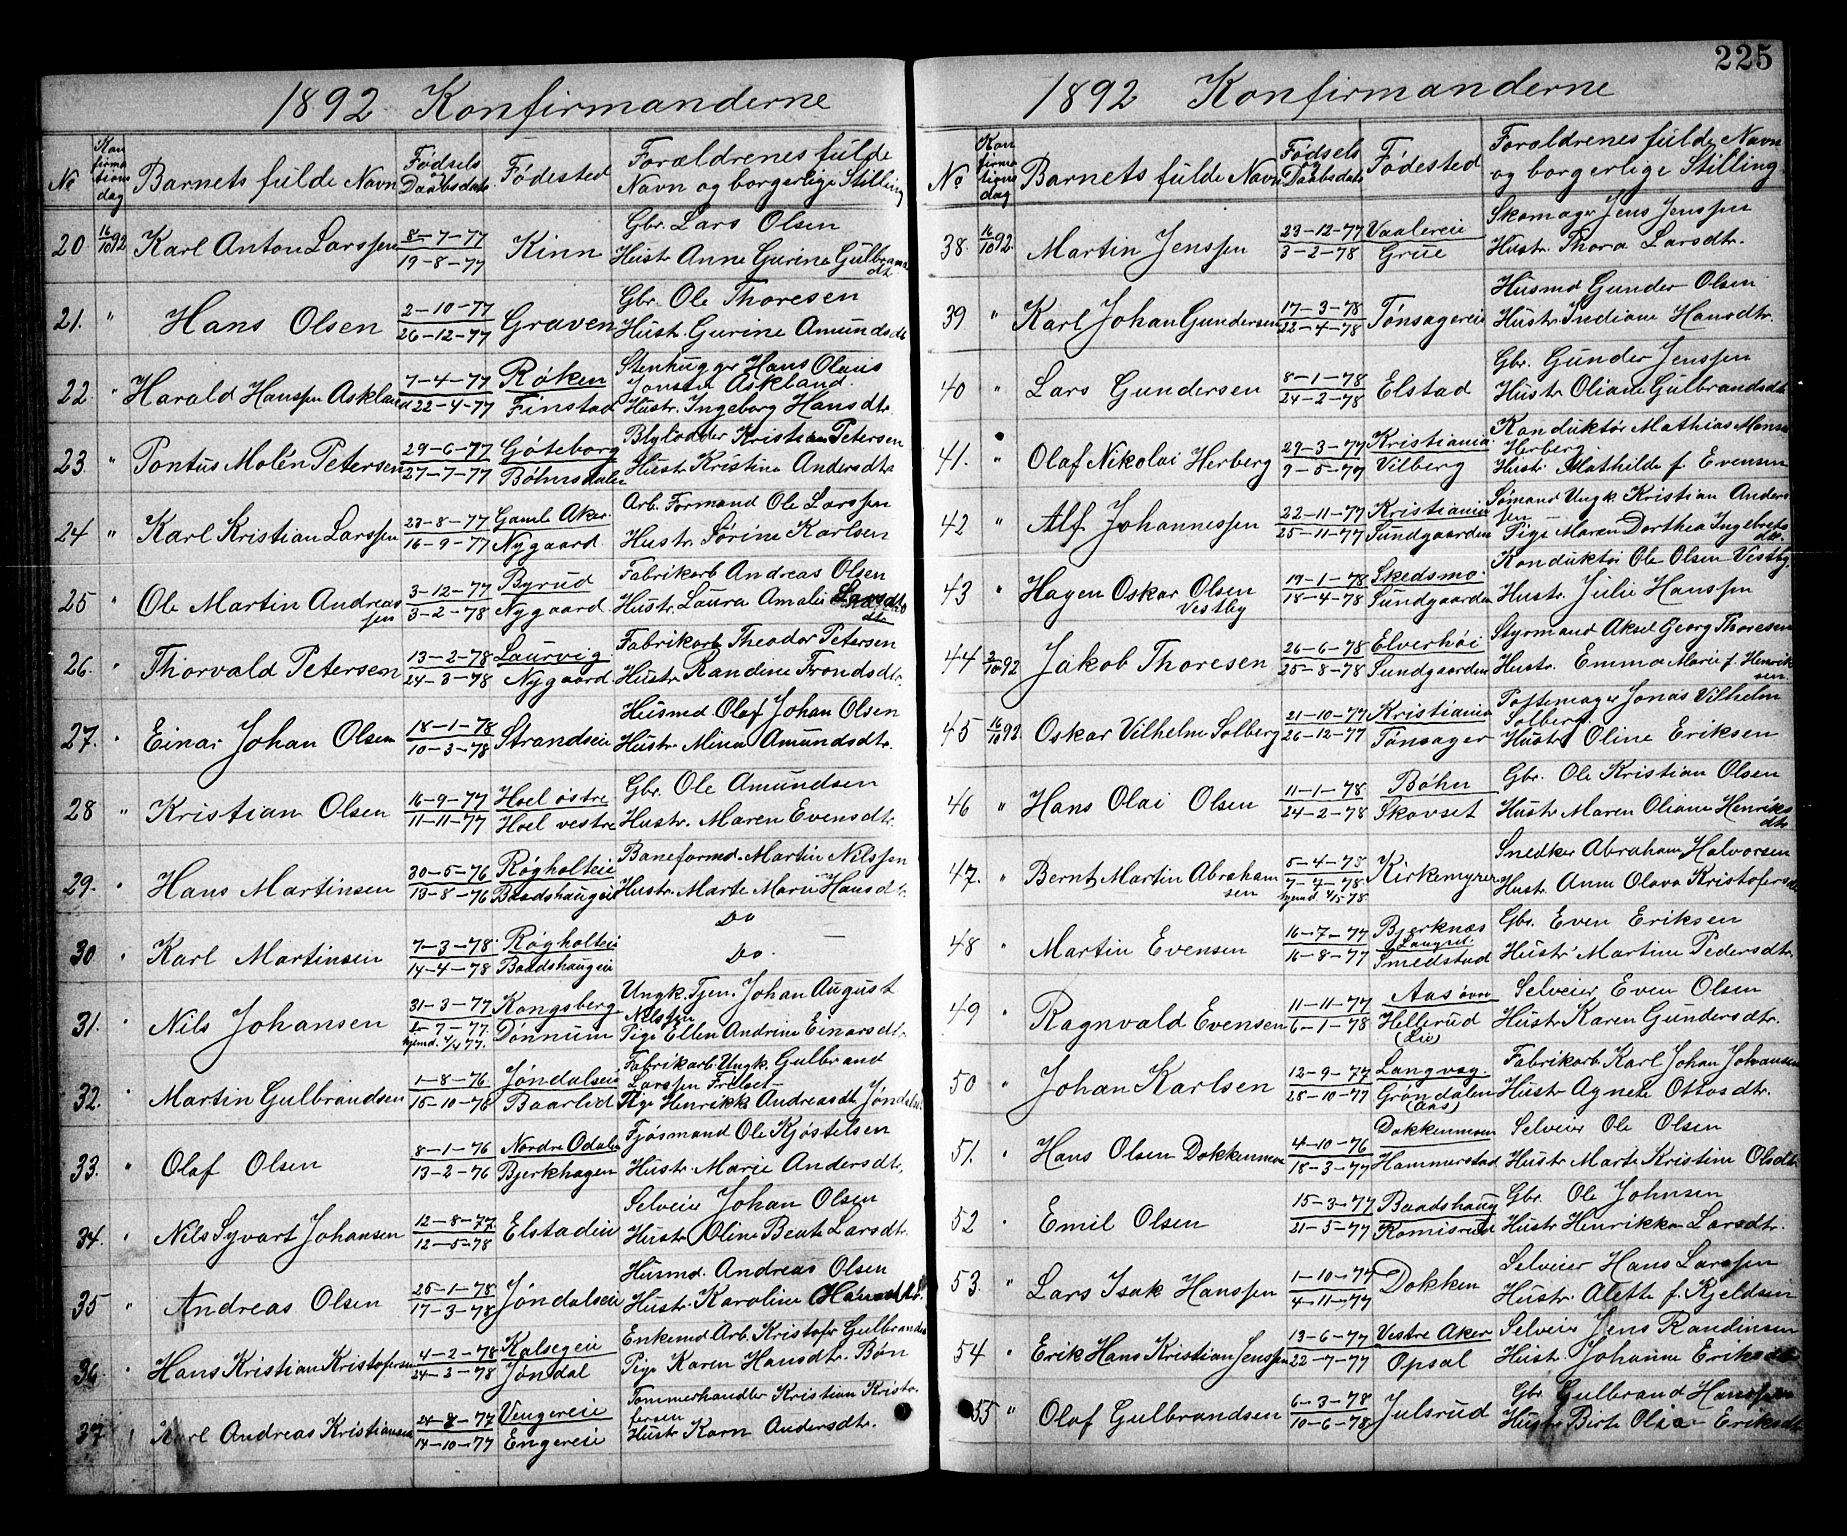 225
1892 Konfirmanderne
No Konfirmationsdag Barnets fulde Navn Fødsels og Daabsdato. Fødested Forældrenes fulde Navn og borgerlige Stilling
20. 16/10 92 Karl Anton Larssen 8-7-77 19-8-77 Kinn Gbr. Lars Olsen Hustr. Anne Gurine Gulbransdt.
21. " Hans Olsen 2-10-77 26-12-77 Graven Gbr. Ole Thoresen Hustr. Gurine Amundsdt.
22. " Harald Hanssen Askland 7-4-77 22-4-77 Røken Finstad Stenhugger Hans Olaus Jonsen Askland. Hustr. Ingeborg Hansdtr.
23. " Pontus Molén Petersen 29-6-77 27-7-77 Göteborg Bøhnsdalen Kristian Petersen Hustr. Kristine Andersdtr.
24 " Karl Kristian Larssen 23-8-77 16-9-77 Gamle Aker Nygaard Arb. Formand Ole Larssen Hustr. Sørine Karlsen
25 " Ole Martin Andreassen 3-12-77 3-2-78 Byrud Nygaard Fabrikarb Andreas Olsen Hustr. Laura Amalie
26. " Thorvald Petersen 13-2-78 24-3-78 Laurvig Nygaard Fabrikarb Theodor Petersen Hustr. Randine Trondsdtr.
27. " Einar Johan Olsen 18-1-78 10-3-78 Strandseie Husmd. Olaf Johan Olsen Hustr. Mina Amundsdtr.
28 " Kristian Olsen 16-9-77 11-11-77 Hoel østre Hoel vestre Gbr. Ole Amundsen Hustr. Maren Evensdtr.
29. " Hans Martinsen 30-5-76 13-8-76 Røgholteie Baadshaugeie Baneformd. Martin Nilssen Hustr. Marte Marie Hansdtr.
30 " Karl Martinsen 7-3-78 14-4-78 Røgholteie Baadshaugeie Do Do.
31. " Nils Johansen 31-3-77 1-7-77. hjemd. 4/4 77. Kongsberg Dønnum Ungk. Tjen. Johan August Nilssen Pige Ellen Andrine Einarsdtr.
32. " Martin Gulbrandsen 1-8-76 15-10-76 Jøndalseie Baarlid Fabrikarb. Ungk. Gulbrand Larssen Pige Henrikke Andreasdt.
33. " Olaf Olsen 8-1-76 13-2-76 Nordre Odalen Bjerkhagen Fjøsmand Ole Kjøstelsen Hustr. Marie Andersdtr.
34. " Nils Syvart Johansen 12-8-77 12-5-78 Elstadeie Selveier Johan Olsen Hustr. Oline Beate Larsdtr.
35 " Andreas Olsen 25-1-78 17-3-78 Jøndalseie Husmd. Andreas Olsen Hustr. Karoline
36 " Hans Kristian Kristofersen 4-2-78 24-3-78 Kalsegeie Jøndal Enkemd Arb. Kristofer Gulbrandsen Pige Karen Hansdtr. Bøn
37 " Karl Andreas Kristiansen 24-8-77 14-10-77 Vengereie Engereie Tømmerhandler Kristian Kristofersen Hustr Karn Andersdtr.
1892 Konfirmanderne
No Konfirmationsdag Barnets fulde Navn Fødsels og Daabsdato Fødested Forældrenes fulde Navn og borgerlige Stilling
38. 16/10 92. Martin Jenssen 23-12-77 3-2-78 Vaalereie Grue Skomager Jens Jenssen Hustr. Thora Larsdtr.
39 " Karl Johan Gundersen 17-3-78 22-4-78 Tønsagereie Husmd Gunder Olsen Hustr. Indiane Hansdtr.
40 " Lars Gundersen 8-1-78 24-2-78 Elstad Gbr. Gunder Jenssen Hustr Oliane Gulbrandsdtr.
41. " Olaf Nikolai Herberg 29-3-77 9-5-77 Kristiania. Vilberg Konduktør Mathias Herberg. Hustr. Mathilde f. Evensen
42 " Alf Johannessen 22-11-77 25-11-77 Kristiania Sundgaarden Sømand Ungk. Kristian Anderssen Pige Maren Dorthea Ingebretsdtr.
43 " Hagen Oskar Olsen Vestby 19-1-78 18-4-78 Skedsmo. Sundgaarden Konduktør Ole Olsen Vestby Hustr. Julie Hanssen
44 2/10 92 Jakob Thoresen 26-6-78 25-8-78 Elverhøi Sundgaarden Styrmand Aksel Georg Thoresen Hustr. Emma Marie f. Henriksen
45 16/10 92 Oskar Vilhelm Solberg 21-10-77 26-12-77 Kristiania Tønsager Pottemager Jonas Vilhelm Solberg. Hustr Oline Eriksen
46 " Hans Olai Olsen 11-1-78 24-2-78 Bøhn Skovset Gbr. Ole Kristian Olsen Hustr. Maren Oliane Henriksdtr
47. " Bernt Martin Abrahamsen 5-4-78 7-4-78. hjemd. Kirkemyren Snedker Abraham Halvorsen Hustr. Anne Olava Kristofersdtr
48 " Martin Evensen 16-7-77 16-8-77 Bjerknæs Langset Smedstad Gbr. Even Eriksen Hustr Martine Pedersdtr.
49 " Ragnvald Evensen 11-11-77 6-1-78 Aas øvre Hellerud (Lie) Selveier Even Olsen Hustr Karen Gundersdtr.
50 " Johan Karlsen 12-9-77 28-10-77 Langvag. Grøndalen (Aas) Fabrikarb. Karl Johan Johansen Hustr Agnete Ottosdtr.
51. " Hans Olsen Dokkenmoen 4-10-76 18-3-77 Dokkenmoen Hammerstad Selveier Ole Olsen Hustr Marte Kristine Olsdtr
52 " Emil Olsen 15-3-77 21-5-77 Baadshaug Komisrud Gbr. Ole Johnsen Hustr Henrikke Larsdtr.
53. " Lars Isak Hanssen 1-10-77 4-11-77 Dokken Selveier Hans Larssen Hustr. Alette f. Kjeldsen
54 " Erik Hans Kristian Jenssen 13-6-77 22-7-77 Vestre Aker Opsal Selveier Jens Randinsen Hustr. Johanne Eriksdtr
55 " Olaf Gulbrandsen 6-3-78 10-6-78 Julsrud Gbr. Gulbrand Hanssen Hustr Birte Olia Eriksdtr